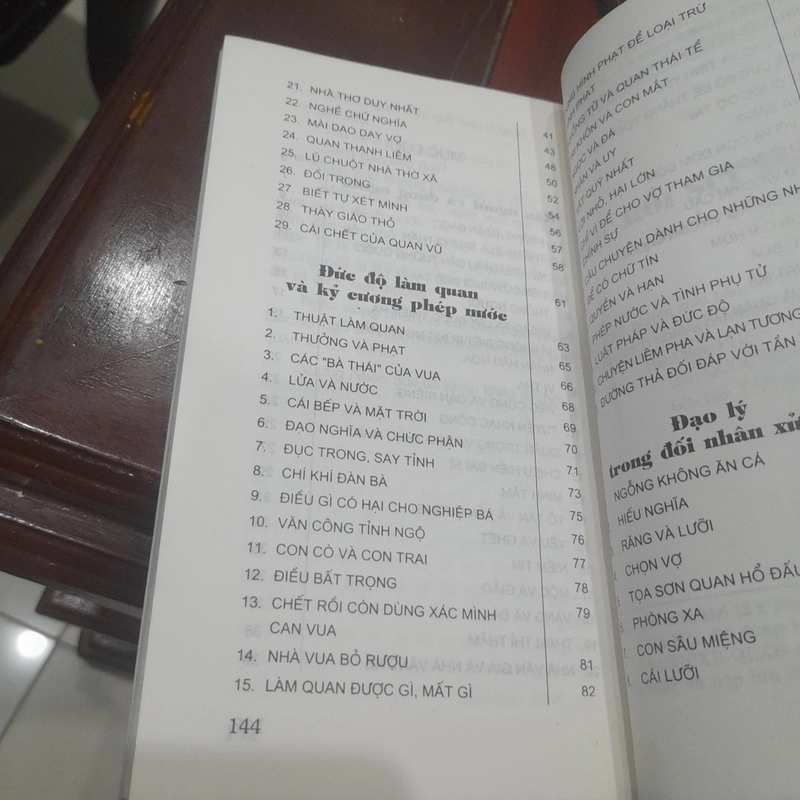 21. NHÀ THƠ DUY NHẤT 41
22. NGHỀ CHỮ NGHĨA 43
23. MÀI DAO DẠY VỢ 48
24. QUAN THANH LIÊM 50
25. LŨ CHUỘT NHÀ THỜ XÃ 52
26. ĐỐI TRỌNG 54
27. BIẾT TỰ XÉT MÌNH 56
28. THẦY GIÁO THỎ 57
29. CÁI CHẾT CỦA QUAN VŨ 58
Đức độ làm quan
và kỷ cương phép nước 61
1. THUẬT LÀM QUAN 63
2. THƯỞNG VÀ PHẠT 65
3. CÁC "BÀ THÁI" CỦA VUA 66
4. LỬA VÀ NƯỚC 68
5. CÁI BẾP VÀ MẶT TRỜI 69
6. ĐẠO NGHĨA VÀ CHỨC PHẬN 70
7. ĐỤC TRONG, SAY TỈNH 71
8. CHÍ KHÍ ĐÀN BÀ 73
9. ĐIỀU GÌ CÓ HẠI CHO NGHIỆP BÁ 75
10. VĂN CÔNG TỈNH NGỘ 76
11. CON CÒ VÀ CON TRAI 77
12. ĐIỀU BẤT TRỌNG 78
13. CHẾT RỒI CÒN DÙNG XÁC MÌNH 79
CAN VUA
14. NHÀ VUA BỎ RƯỢU 81
15. LÀM QUAN ĐƯỢC GÌ, MẤT GÌ 82
144
HÌNH PHẠT ĐỂ LOẠI TRỪ
TỪ VÀ QUAN THÁI TỂ
KHÔN VÀ CON MẮT
VÀ ĐÁ
VÀ UY
QUÝ NHẤT
NHỎ, HẠI LỚN
VÌ ĐỂ CHO VỢ THAM GIA
CHÍNH SỰ
CÂU CHUYỆN DÀNH CHO NHỮNG
ĐỂ CÓ CHỮ TÍN
QUYỀN VÀ HẠN
PHÉP NƯỚC VÀ TÌNH PHỤ TỬ
LUẬT PHÁP VÀ ĐỨC ĐỘ
CHUYỆN LIÊM PHA VÀ LẠN TƯƠNG
ĐƯỜNG THẢ ĐỐI ĐÁP VỚI TẦN
Đạo lý
trong đối nhân xử
NGỖNG KHÔNG ĂN CÁ
HIẾU NGHĨA
RĂNG VÀ LƯỠI
CHỌN VỢ
TỌA SƠN QUAN HỔ ĐẤU
PHÒNG XA
CON SÂU MIỆNG
CÁI LƯỠI